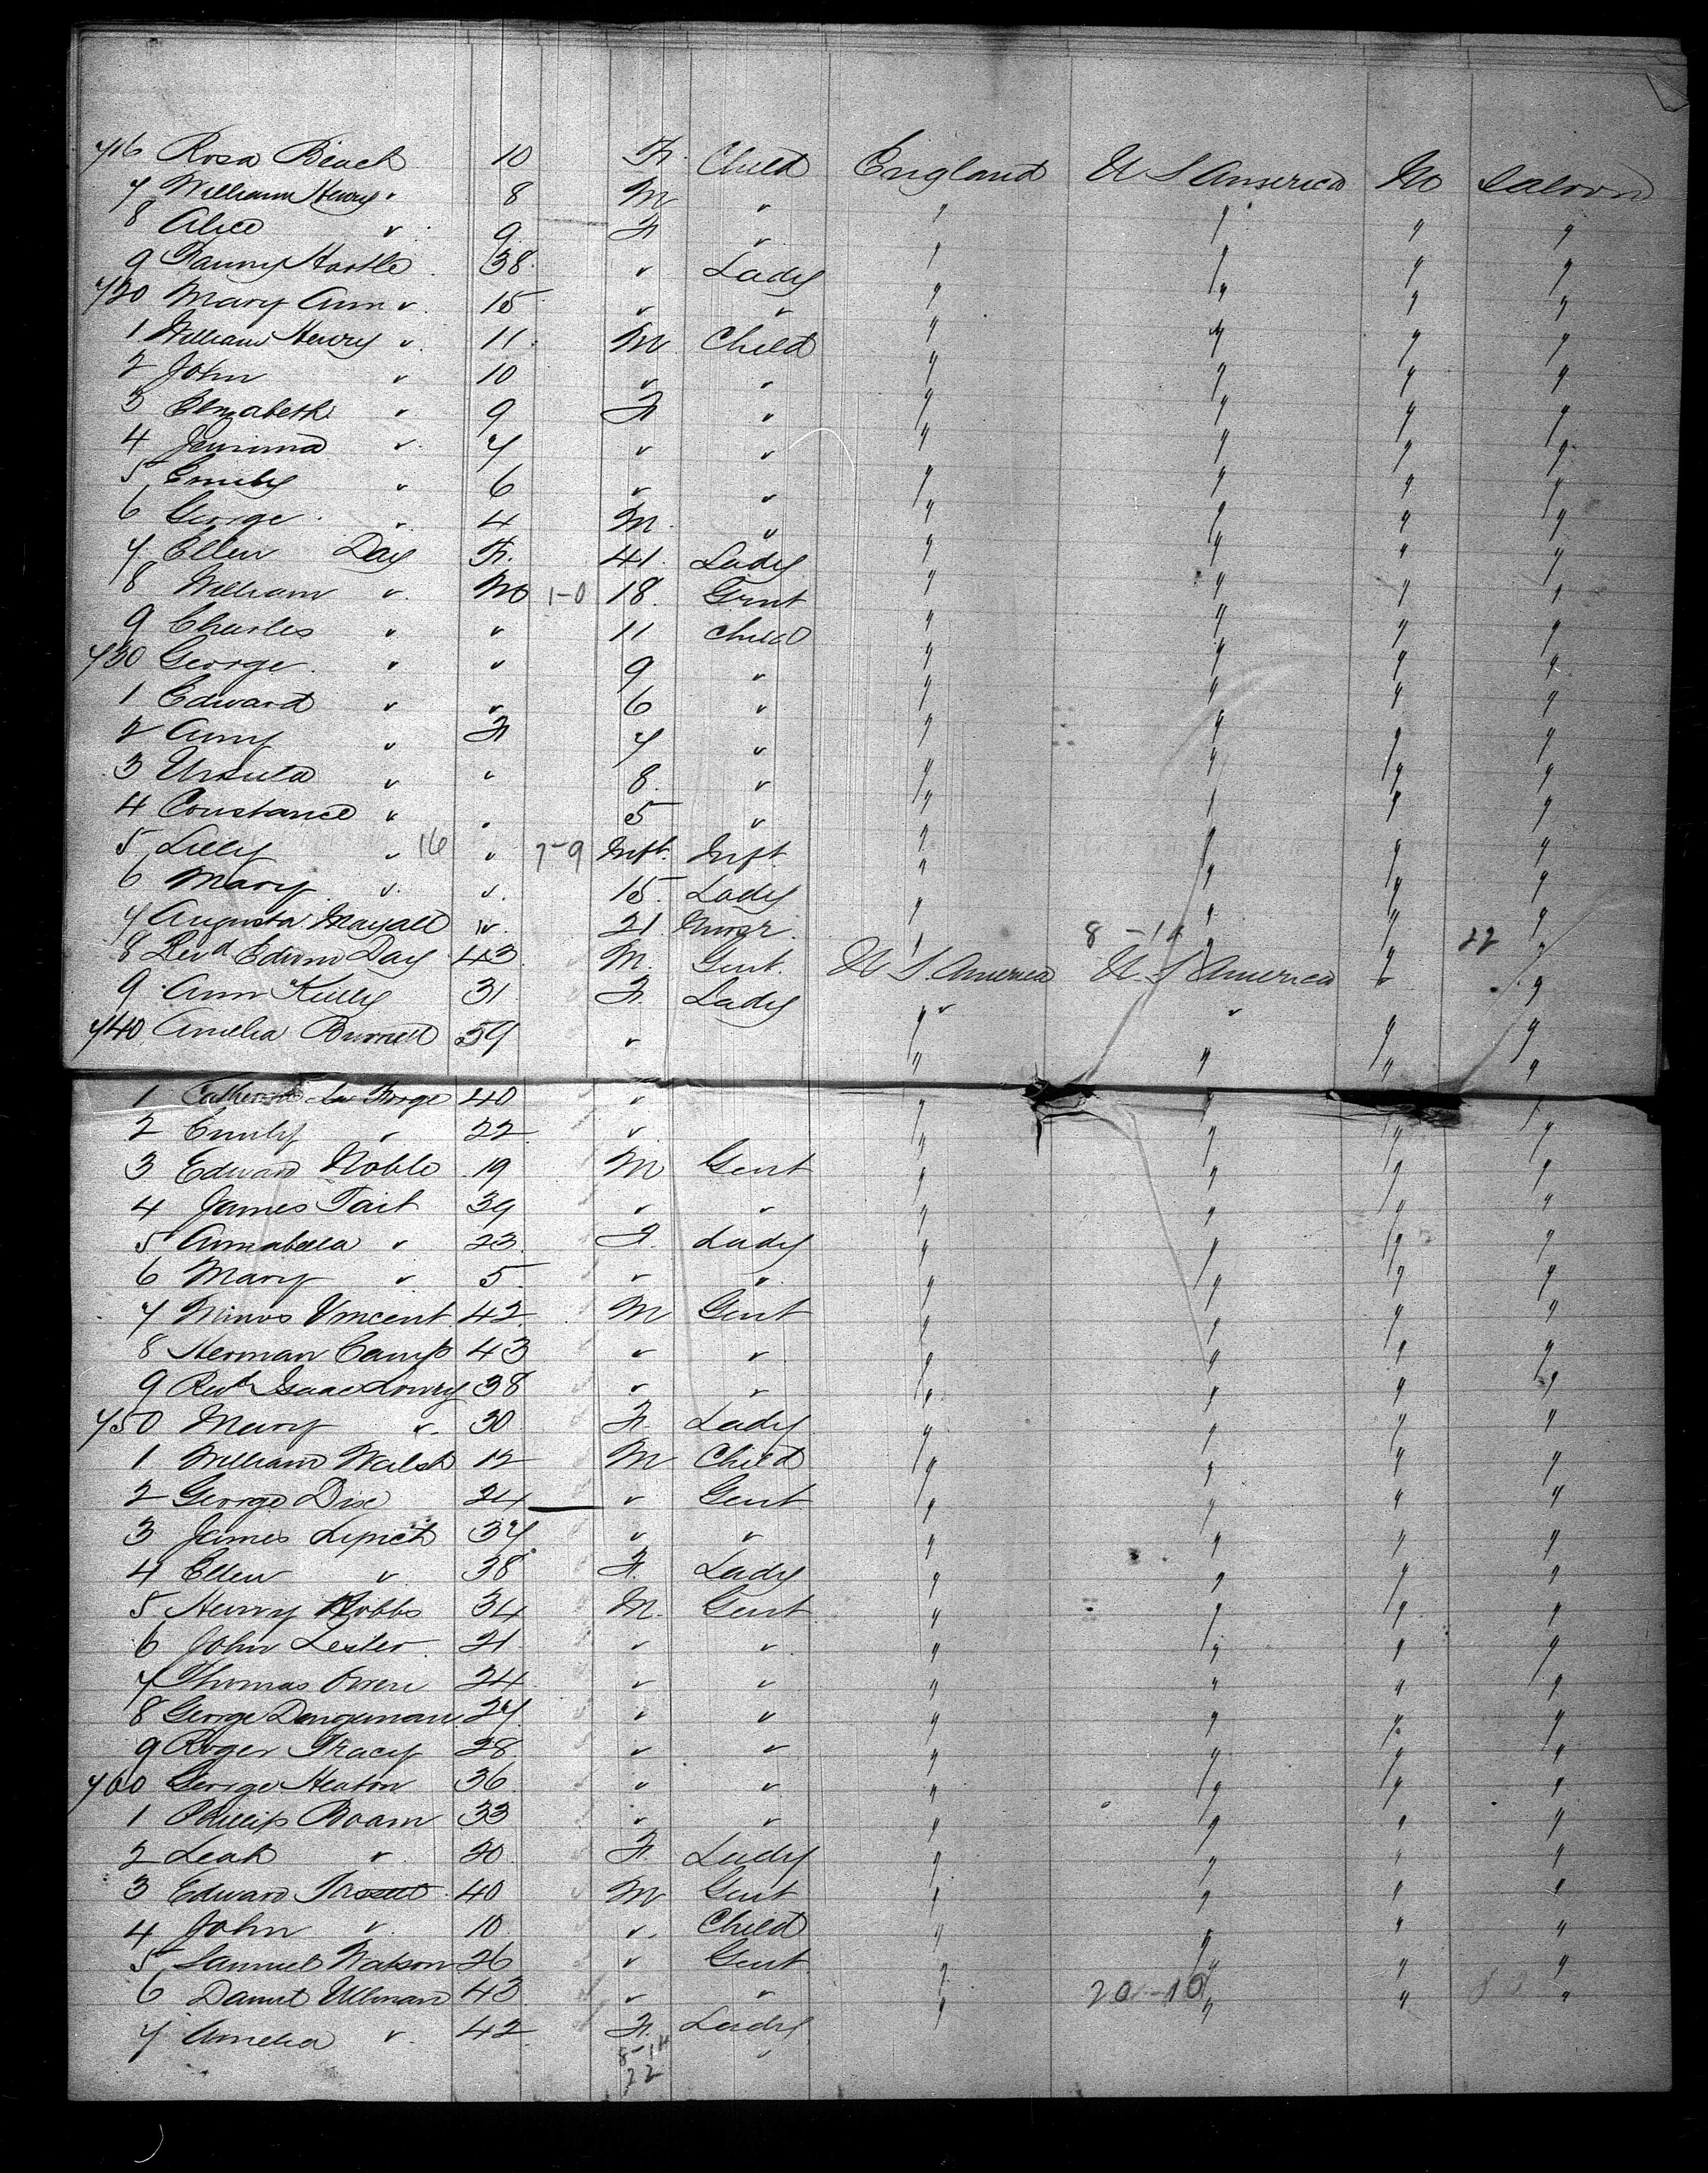 716 Rosa Beach 10 F. Child England U S America No Saloon
7 William Henry " 8 M " " " " "
8 Alice " 9 F " " " " "
9 Fanny Hartle 38 " Lady " " " "
720 Mary Ann " 15 " " " " " "
1 William Henry " 11 M Child " " " "
2 John " 10 " " " " " "
3 Elizabeth " 9 F " " " " "
4 Jemima " 7 " " " " " "
5 Emily " 6 " " " " " "
6 George " 4 M " " " " "
7 Ellen Day F. 41 Lady " " " "
8 William " M 1-0 18 Gent " " " "
9 Charles " " 11 Child " " " "
730 George " " 9 " " " " "
1 Edward " " 6 " " " " "
2 Amy " F 7 " " " " "
3 Ursula " " 8 " " " " "
4 Constance " " 5 " " " " "
5 Lilly " 16 " 7-9 Inft. Inft. " " " "
6 Mary " " 15 Lady " " " "
7 Augusta Mayall " 21 " " " "
8 Revd Edwin Day 43 M. Gent. U S. America U S America " 22 "
9 Ann Kelly 31 F Lady " " " "
740 Amelia Burnell 59 " " " " "
1 Catherine La Forge 40 " " " " "
2 Emily " 22 " " " " "
3 Edward Noble 19 M Gent " " " "
4 James Tait 39 " " " " " "
5 Annabella " 23 F. Lady " " " "
6 Mary " 5 " " " " " "
7 Minos Vincent 42 M Gent " " " "
8 Herman Camp 43 " " " " " "
9 Revd Isaac Lowry 38 " " " " " "
750 Mary " 30 F. Lady " " " "
1 William Walsh 12 M Child " " " "
2 George Dix 24 " Gent " " " "
3 James Lynch 37 " " " " " "
4 Ellen " 38 F. Lady " " " "
5 Henry Hobbs 34 M. Gent " " " "
6 John Lester 21 " " " " " "
7 Thomas Owen 24 " " " " " "
8 George Dangeman 27 " " " " " "
9 Roger Tracy 28 " " " " " "
760 George Heaton 36 " " " " " "
1 Phillip Boam 33 " " " " " "
2 Leah " 20 F. Lady " " " "
3 Edward 40 M Gent " " " "
4 John " 10 " Child " " " "
5 Samuel Watson 26 " Gent " " " "
6 Daniel Ullman 43 " " " 20-10 " " "
7 Amelia " 42 F. Lady
22